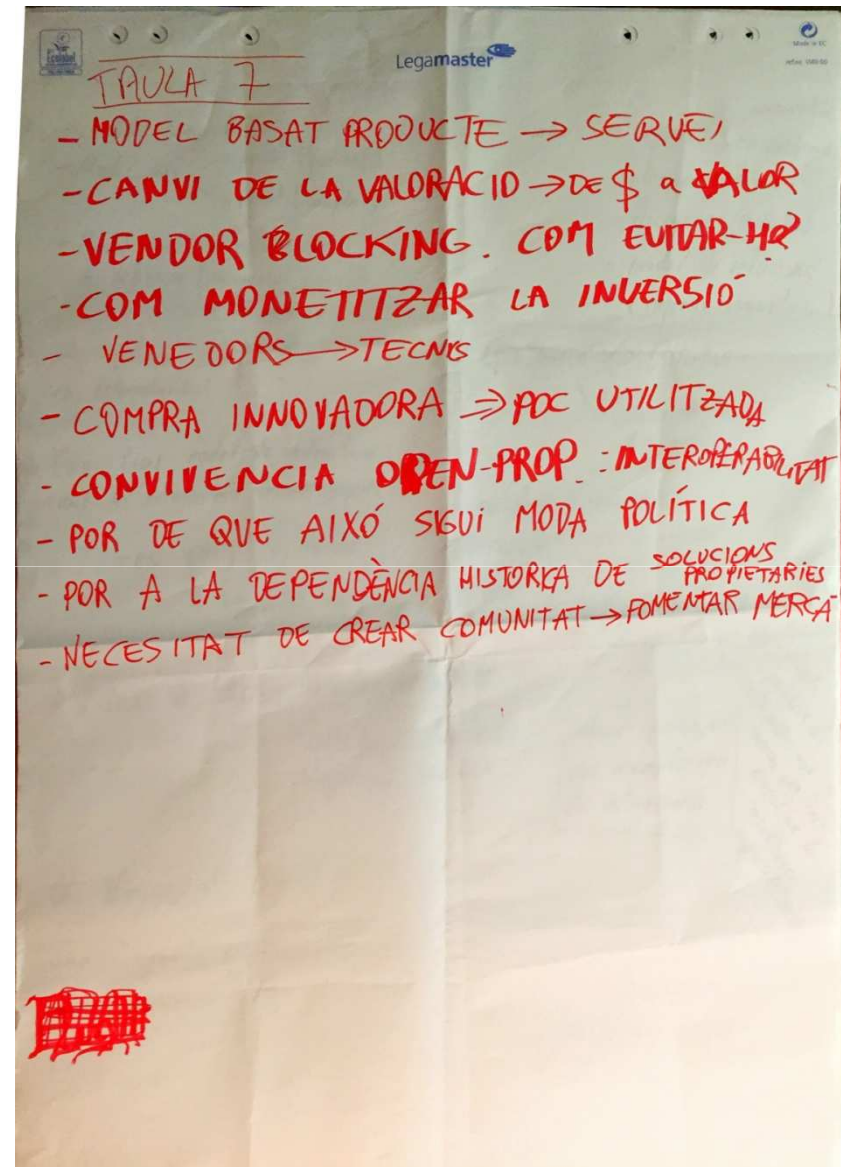 Legamaster
TAULA 7
- MODEL BASAT PRODUCTE → SERVEI
- CANVI DE LA VALORACIO → DE $ a VALOR
- VENDOR BLOCKING. COM EVITAR-HO?
- COM MONETITZAR LA INVERSIÓ
- VENEDORS → TECNICS
- COMPRA INNOVADORA ⇒ POC UTILITZADA
- CONVIVENCIA OPEN-PROP. : INTEROPERABILITAT
- POR DE QUE AIXÓ SIGUI MODA POLÍTICA
- POR A LA DEPENDÈNCIA HISTORICA DE SOLUCIONS PROPIETARIES
- NECESITAT DE CREAR COMUNITAT → FOMENTAR MERCA